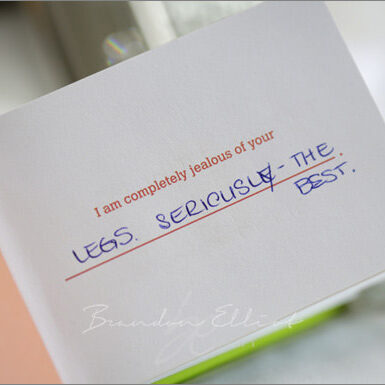 I am completely jealous of your
LEGS. SERIOUSLY - THE.
BEST.
Brandon Elliot